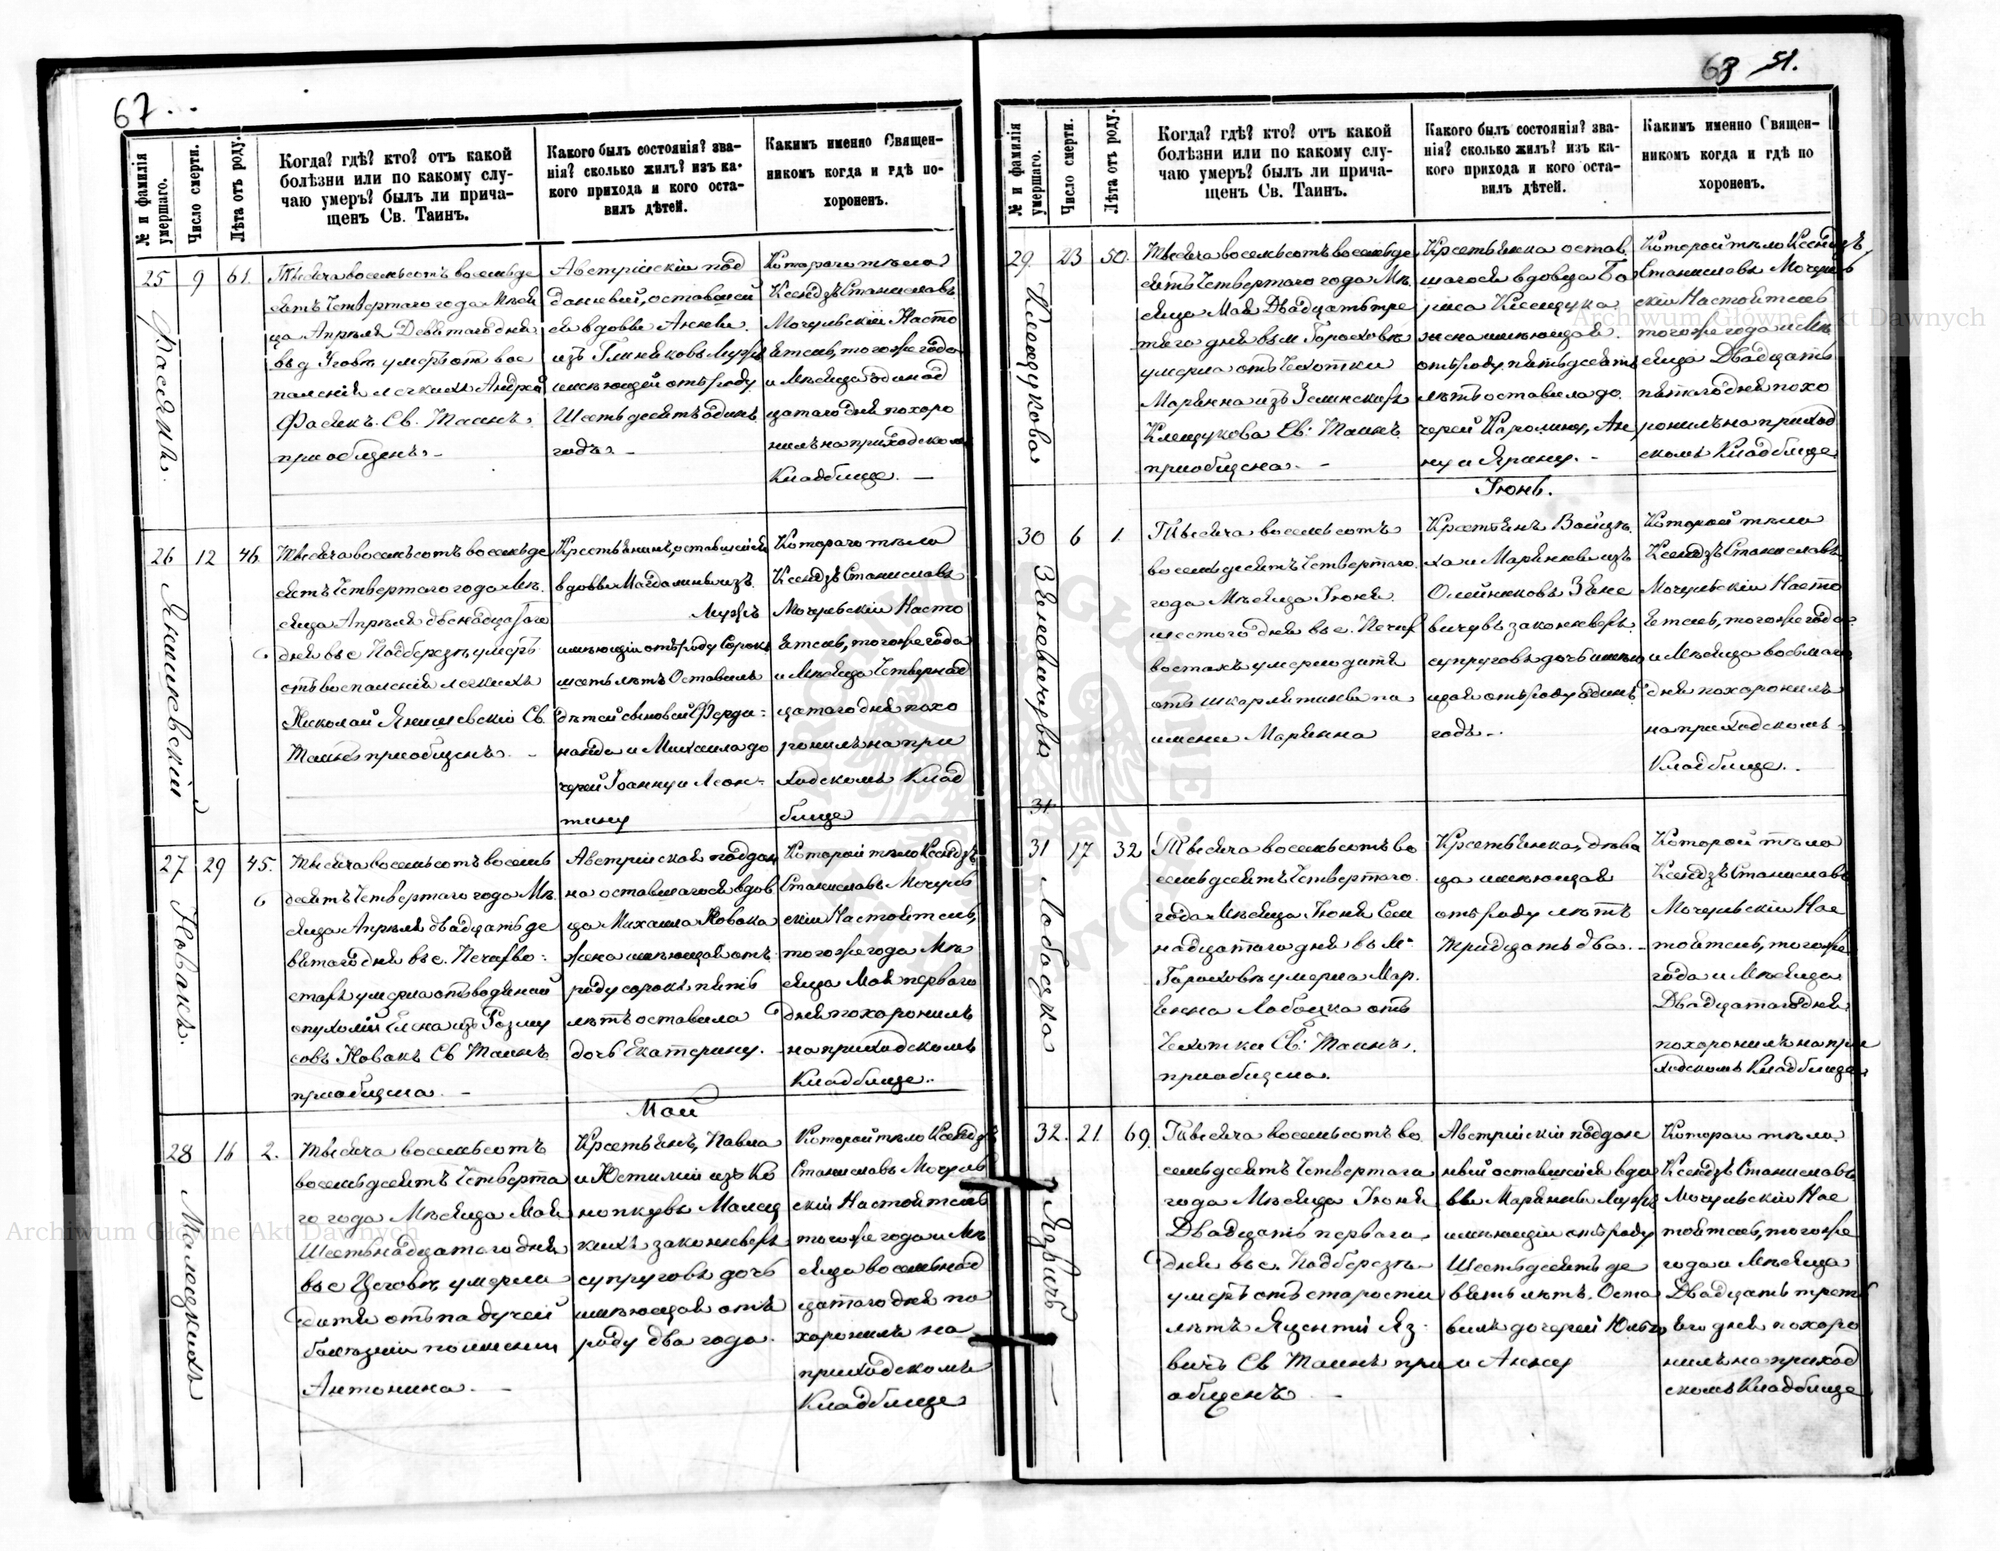 67.
№ и фамилія умершаго.
Число смерти.
Лѣта отъ роду.
Когда? гдѣ? кто? отъ какой
болѣзни или по какому слу-
чаю умеръ? былъ ли прича-
щенъ Св. Таинъ.
Какого былъ состоянія? зва-
нія? сколько жилъ? изъ ка-
кого прихода и кого оста-
вилъ дѣтей.
Какимъ именно Священ-
никомъ когда и гдѣ по-
хороненъ.
25
Фасяикъ.
9
61.
Тысяча восемьсотъ восемьде
сятъ четвертаго года Мѣся
ца Апрѣля Девятаго дня
умеръ отъ вос
паленія легкихъ Андрей
Фасяикъ. Св. Таинъ
приобщенъ. –
Австрійскій под
данный, оставшей
ся вдовы Анны
имѣющей отъ роду
Шестьдесятъ одинъ
годъ. –
Котораго тѣло
Ксендзъ Станиславъ
Мочульскій Насто
ятель, того же года
и Мѣсяца одинад
цатаго дня похоро
нилъ на приходскомъ
Кладбище. –
26
Янишевскій
12
46.
Тысяча восемьсотъ восемьде
сятъ четвертаго года Мѣ
сяца Апрѣля двѣнадцатаго
дня въ с. Подберезѣ умеръ
отъ воспаленія легкихъ
Николай Янишевскій Св.
Таинъ приобщенъ. –
Крестьянинъ, оставшейся
вдовы Магдалины изъ
мужъ
имѣющій отъ роду Сорокъ
шесть лѣтъ Оставилъ
дѣтей сыновей Ферди-
нанда и Михаила до
черей Іоанну и Леон-
тину
Котораго тѣло
Ксендзъ Станиславъ
Мочульскій Насто
ятель, того же года
и Мѣсяца Четвернад
цатаго дня похо
ронилъ на при
ходскомъ Клад
бище
27
Новакъ.
29
45.
Тысяча восемьсотъ восемь
десятъ четвертаго года Мѣ
сяца Апрѣля двадцать де
вятаго дня въ с. Печиво-
стахъ умерла отъ водяной
опухоли Елена изъ
Новакъ Св. Таинъ
приобщена. –
Австрійская поддан
на оставшагося вдов
ца Михаила Новака
жена имѣющая отъ
роду сорокъ пять
лѣтъ оставила
дочь Екатерину.
Которой тѣло Ксендзъ
Станиславъ Мочуль
скій Настоятель,
того же года Мѣ
сяца Мая перваго
дня похоронилъ
на приходскомъ
Кладбище.
Май
28
Малецкихъ
16
2.
Тысяча восемьсотъ
восемьдесятъ четверта
го года Мѣсяца Мая
Шестьнадцатаго дня
въ с. умерла
дитя отъ падучей
болѣзни по имени
Антонина. –
Крестьянъ, Павла
и Юстиніи изъ Ко
нопковъ Малец
кихъ законныхъ
супруговъ дочь
имѣющая отъ
роду два года.
Которой тѣло Ксендзъ
Станиславъ Мочуль
скій Настоятель
того же года и Мѣ
сяца восемьнад
цатаго дня по
хоронилъ на
приходскомъ
Кладбище
68 51.
№ и фамилія умершаго.
Число смерти.
Лѣта отъ роду.
Когда? гдѣ? кто? отъ какой
болѣзни или по какому слу-
чаю умеръ? былъ ли прича-
щенъ Св. Таинъ.
Какого былъ состоянія? зва-
нія? сколько жилъ? изъ ка-
кого прихода и кого оста-
вилъ дѣтей.
Какимъ именно Священ-
никомъ когда и гдѣ по
хороненъ.
29.
Клещукова
23
50.
Тысяча восемьсотъ восемьде
сятъ четвертаго года Мѣ
сяца Мая Двадцать тре
тяго дня въ м. Гороховѣ
умерла отъ чахотки
Марянна изъ Зелинскихъ
Клещукова Св. Таинъ
приобщена. –
Крестьянка остав
шагося вдовца Бо
риса Клещука
жена имѣющая
отъ роду пятьдесятъ
лѣтъ оставила до
черей Каролину, Ан
ну и Ирину. –
Которой тѣло Ксендзъ
Станиславъ Мочуль
скій Настоятель
того же года и Мѣ
сяца Двадцать
пятаго дня похо
ронилъ на приход
скомъ Кладбище
Іюнь.
30
Зѣневичувы
6
1.
Тысяча восемьсотъ
восемьдесятъ четвертаго
года Мѣсяца Іюня
шестого дня въ с. Печих
востахъ умерло дитя
отъ шкарлятины по
имени Марянна
Крестьянъ Войцѣ
ха и Марянны изъ
Олейниковъ Зѣне
вичувъ законныхъ
супруговъ дочь имѣю
щая отъ роду одинъ
годъ. –
Которой тѣло
Ксендзъ Станиславъ
Мочульскій Насто
ятель, того же года
и Мѣсяца восьмаго
дня похоронилъ
на приходскомъ
Кладбище.
31
31
Лобацка
17
32
Тысяча восемьсотъ во
семьдесятъ четвертаго
года Мѣсяца Іюня Сем
надцатаго дня въ м.
Гороховѣ умерла Мар.
янна Лобацка отъ
чахотки Св. Таинъ
приобщена.
Крестьянка, дѣви
ца имѣющая
отъ роду лѣтъ
тридцать два. –
Которой тѣло
Ксендзъ Станиславъ
Мочульскій Нас
тоятель, того же
года и Мѣсяца
Двадцатаго дня
похоронилъ на при
ходскомъ Кладбище
32.
Язвичъ
21.
69.
Тысяча восемьсотъ во
семьдесятъ четвертаго
года Мѣсяца Іюня
Двадцать перваго
дня въ с. Подберезѣ
умеръ отъ старости
лѣтъ Яцентій Яз-
вичъ Св. Таинъ при
общенъ –
Австрійскій поддан
ный оставшейся вдо
вы Марянны мужъ
имѣющій отъ роду
Шестьдесятъ де
вять лѣтъ. Оста
вилъ дочерей Юлью
и Анну
Котораго тѣло
Ксендзъ Станиславъ
Мочульскій Нас
тоятель, того же
года и Мѣсяца
Двадцать треть
яго дня похоро
нилъ на приход
скомъ Кладбище
Archiwum Główne Akt Dawnych
Archiwum Główne Akt Dawnych